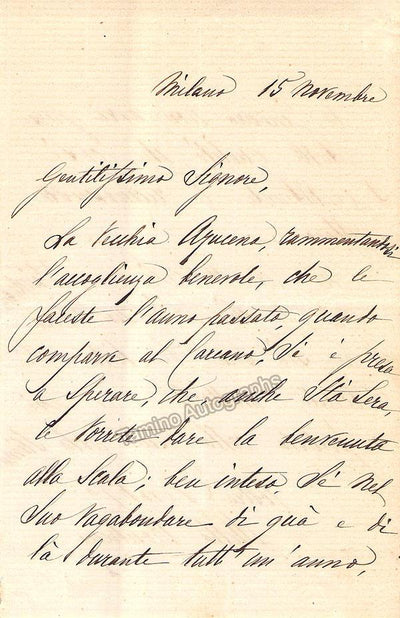 Milano 15 Novembre
Gentilissimo Signore,
La Vecchia Azucena, rammentandosi
l'accoglienza benevole, che le
faceste l'anno passato, quando
comparve al Carcano, Si è presa
a Sperare, che, anche Stà Sera,
le Vorrete dare la benvenuta
alla Scala; ben inteso, Sé nel
Suo Vagabondare di quà e di
là durante tutt' un' anno,
Tamino Autographs